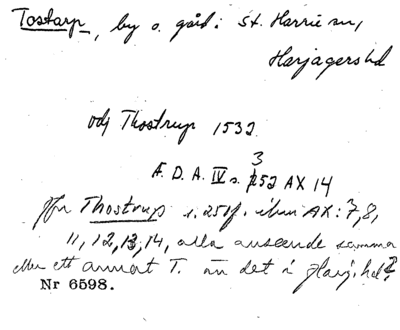 Tostarp, by o. gård i St. Harrie sn,
Harjagers hd
Thostrup 1532
F. D. A. IV s. 352 AX 14
jfr Thostrup s. 250f. AX: 7, 8,
11, 12, 13, 14, alla avseende samma
eller ett annat T. än det i Harj. hd?
Nr 6598.